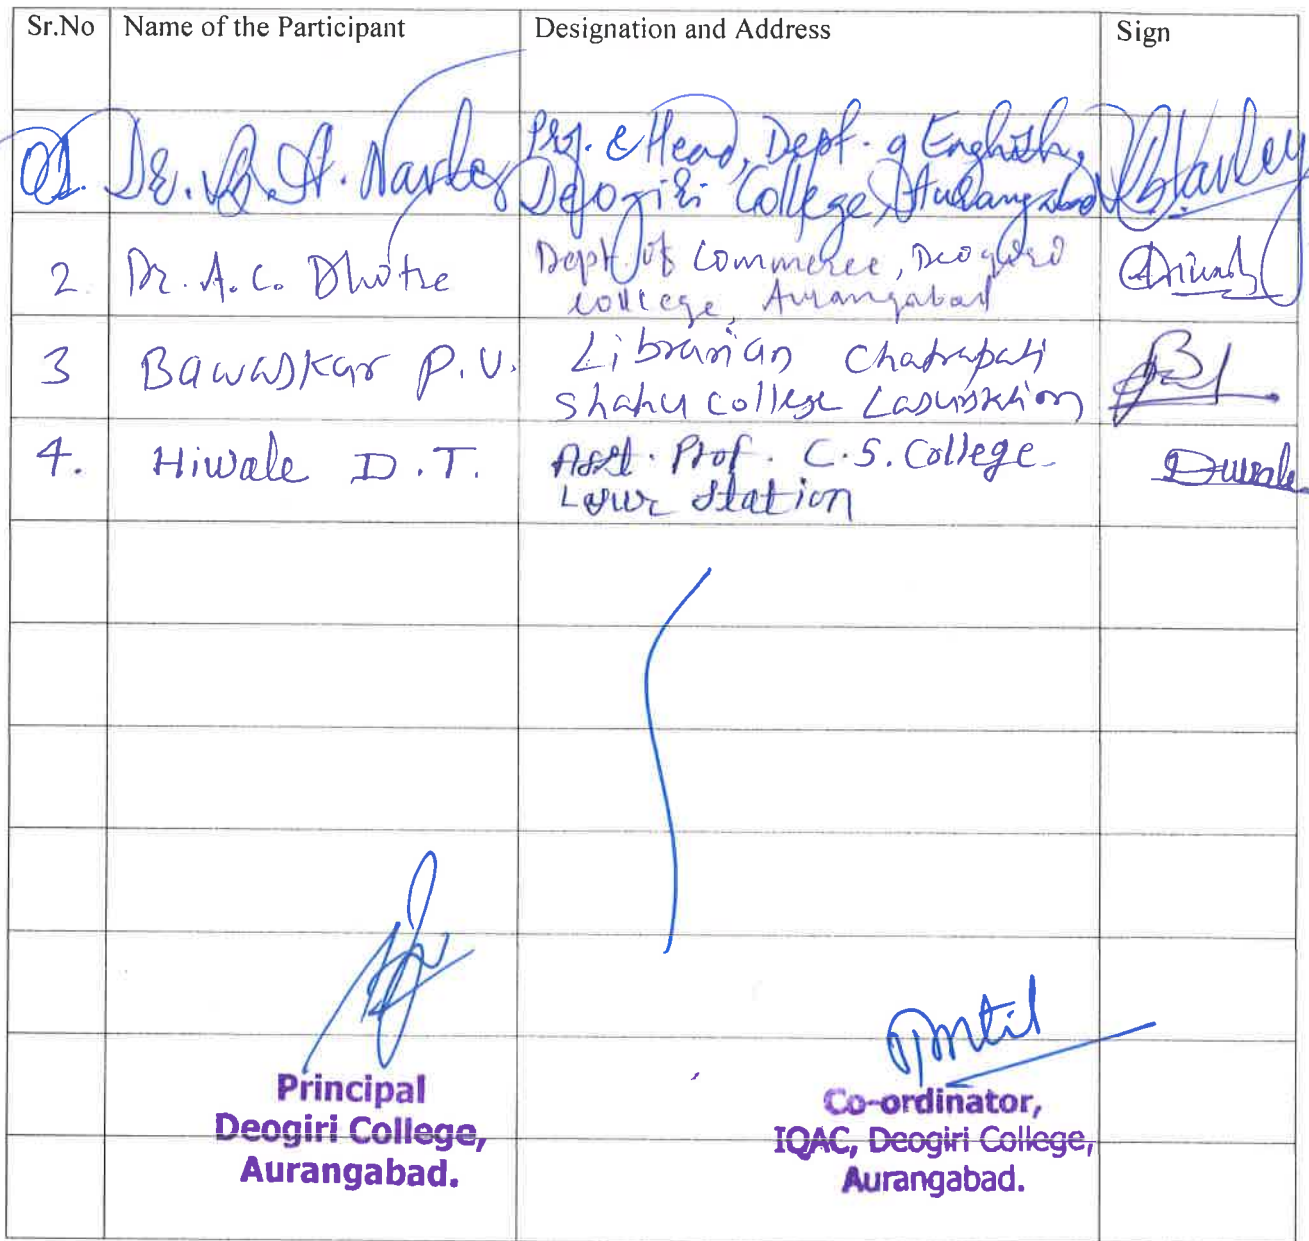 Sr.No Name of the Participant Designation and Address Sign
01. Dr. Prof. & Head, Dept. of English,
Deogiri College, Aurangabad
2. Dr. A.C. Dhotre Dept of Commerce, Deogiri
college, Aurangabad
3 Bawaskar P.V. Librarian Chatrapati
Shahu College
4. Hiwale D.T. Asst. Prof. C.S. College
Lasur Station
Principal
Deogiri College,
Aurangabad.
Co-ordinator,
IQAC, Deogiri College,
Aurangabad.